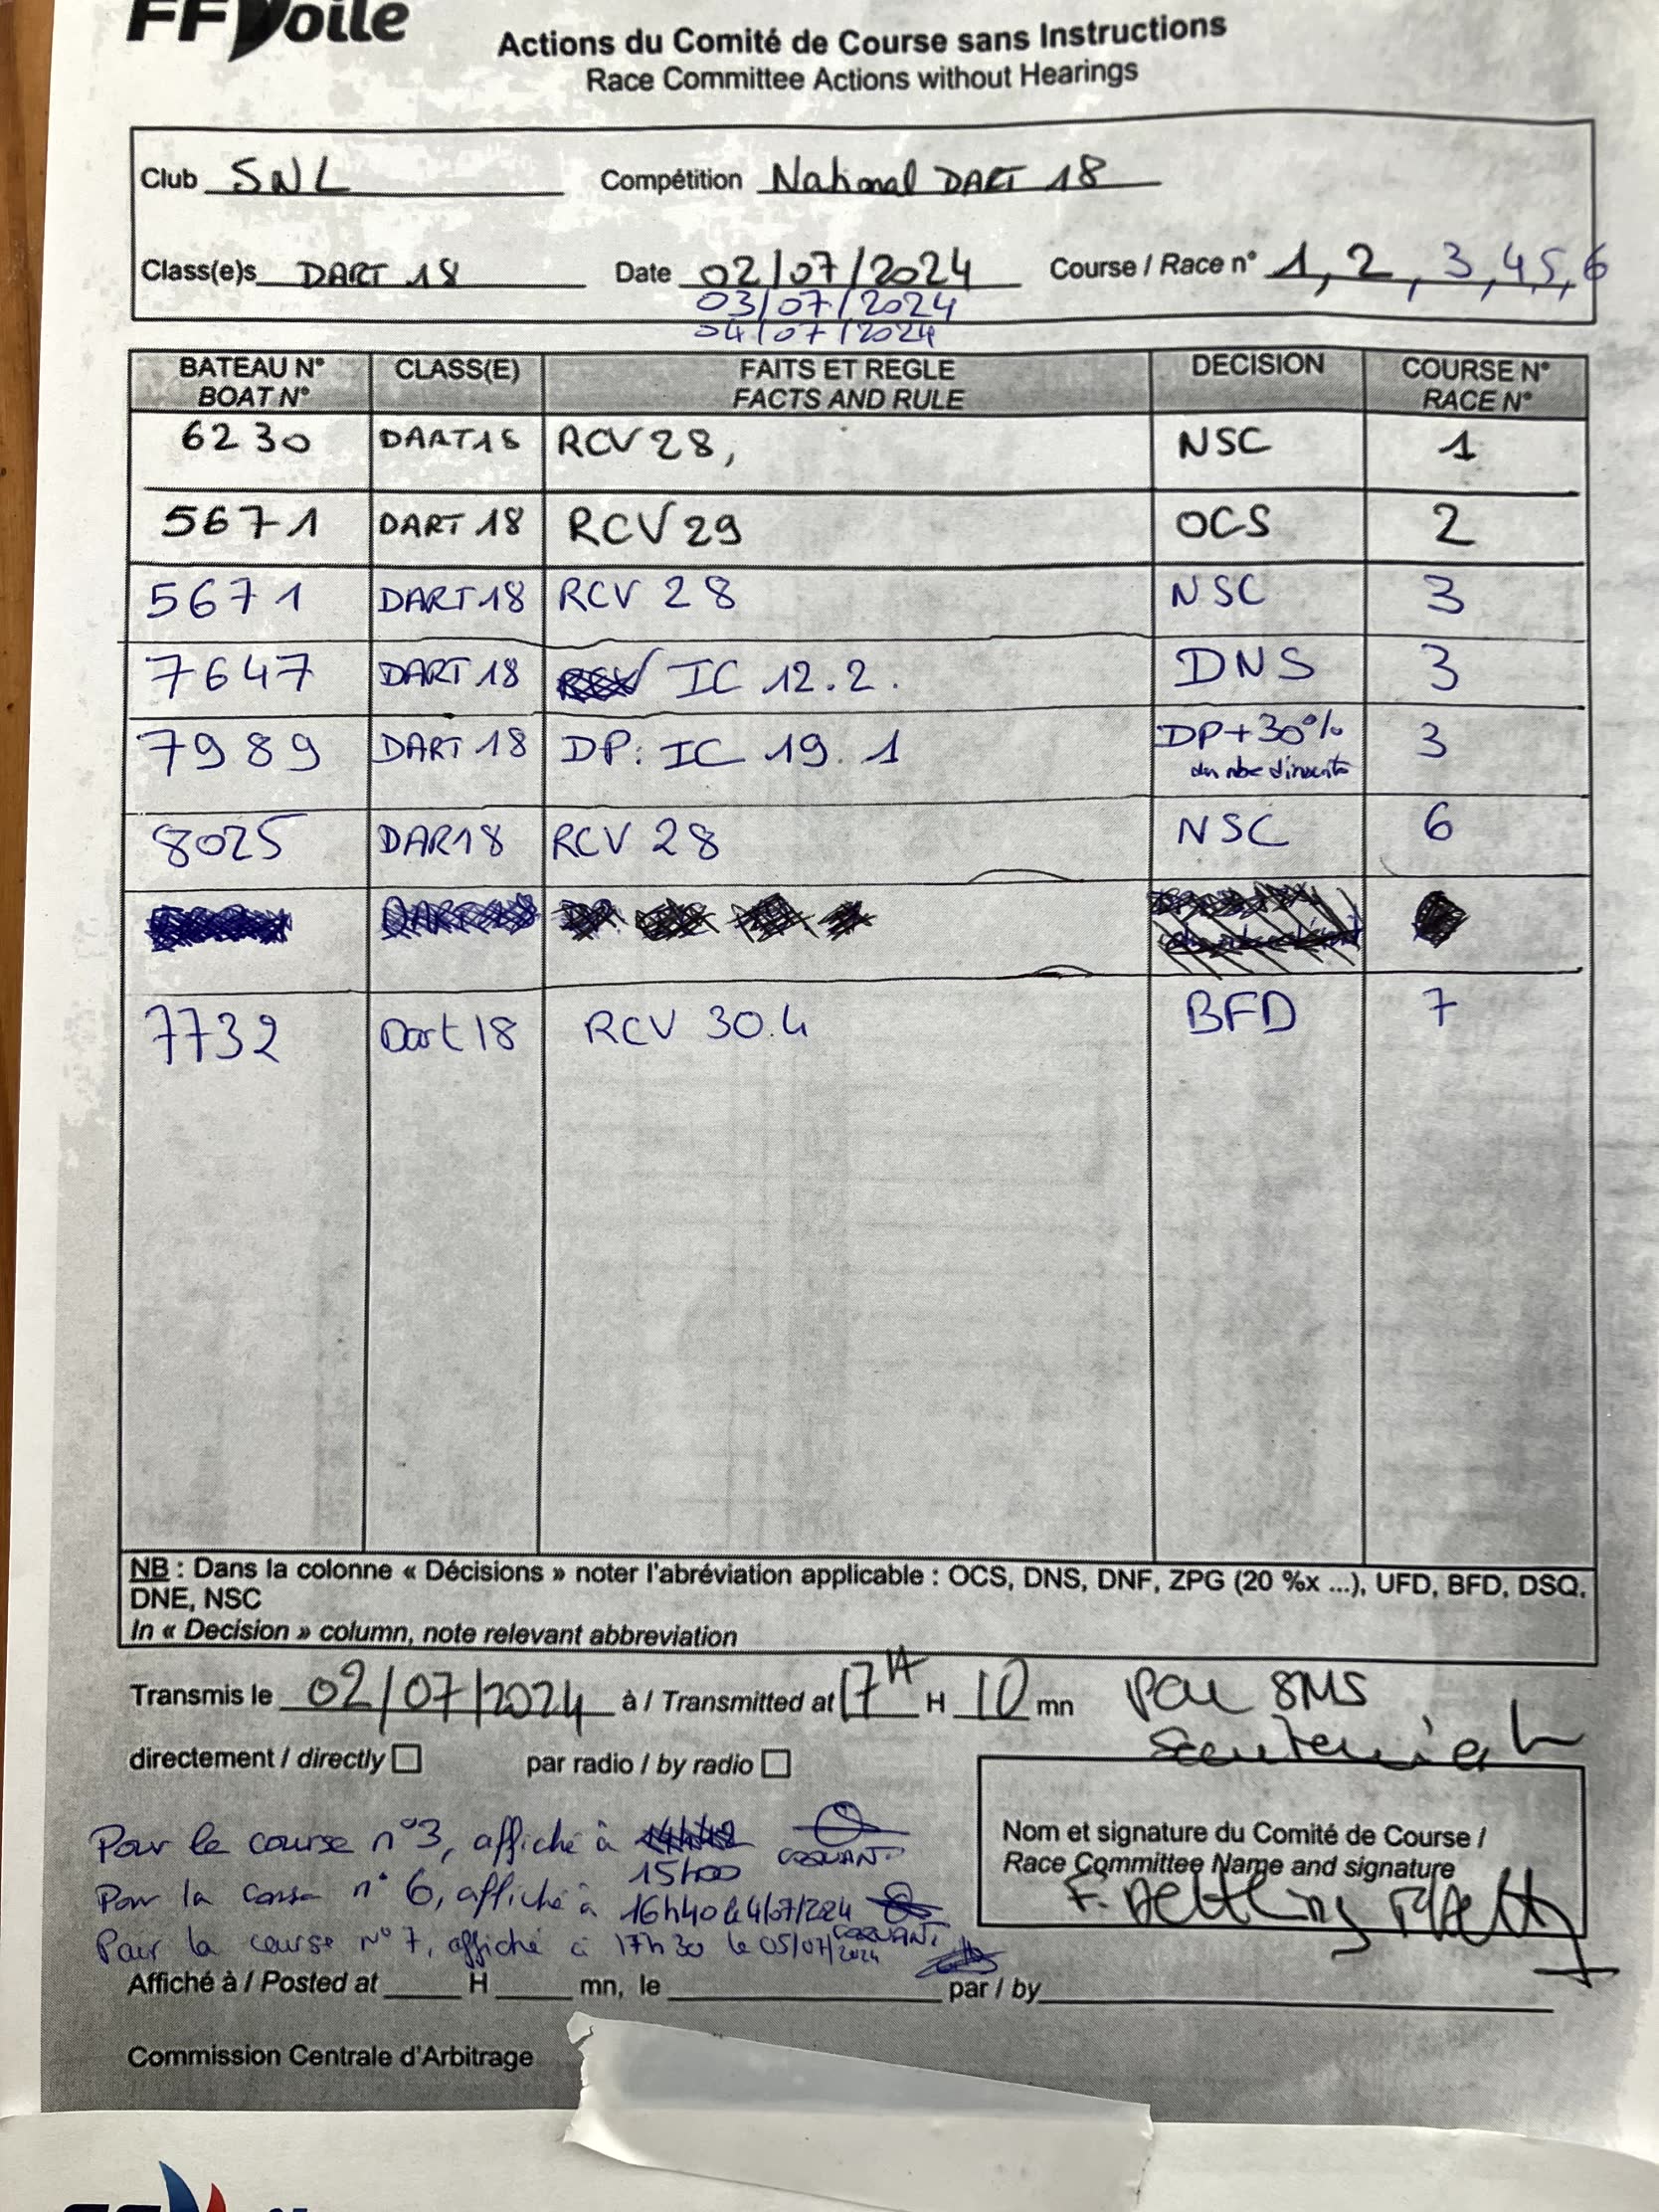 FFVoile
Actions du Comité de Course sans Instructions
Race Committee Actions without Hearings
Club SNL Compétition National DART 18
Class(e)s DART 18 Date 02/07/2024 Course / Race n° 1, 2, 3, 4, 5, 6
03/07/2024
04/07/2024
BATEAU N° CLASS(E) FAITS ET REGLE DECISION COURSE N°
BOAT N° FACTS AND RULE RACE N°
6230 DART18 RCV 28, NSC 1
5671 DART 18 RCV 29 OCS 2
5671 DART 18 RCV 28 NSC 3
7647 DART 18 IC 12.2. DNS 3
7989 DART 18 DP: IC 19.1 DP+30% 3
du nbe d'inscrits
8025 DAR18 RCV 28 NSC 6
7732 Dart 18 RCV 30.4 BFD 7
NB : Dans la colonne « Décisions » noter l'abréviation applicable : OCS, DNS, DNF, ZPG (20 %x ...), UFD, BFD, DSQ,
DNE, NSC
In « Decision » column, note relevant abbreviation
Transmis le 02/07/2024 à / Transmitted at 17H H 10 mn par SMS
directement / directly par radio / by radio
Pour le course n°3, affiché à
15h00 COQUANT
Pour la course n° 6, affiché à 16h40 le 4/07/2024
COQUANT
Pour la course n° 7, affiché à 17h30 le 05/07/2024
Nom et signature du Comité de Course /
Race Committee Name and signature
Affiché à / Posted at H mn, le par / by
Commission Centrale d'Arbitrage